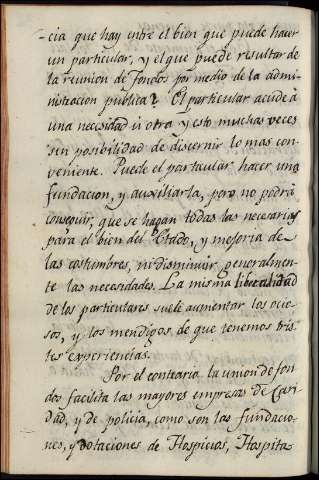 -cia que hay entre el bien que puede hacer
un particular, y el que puede resultar de
la reunion de fondos por medio de la admi-
nistracion publica? El particular acude à
una necesidad ù otra y esto muchas veces
sin posibilidad de discernir lo mas con-
veniente. Puede el particular hacer una
fundacion, y auxiliarla, pero no podrá
conseguir, que se hagan todas las necesarias
para el bien del Estado, y mejoria de
las costumbres, ni disminuir generalmen-
te las necesidades. La misma liberalidad
de los particulares suele aumentar los ocio-
sos, y los mendigos, de que tenemos tris-
tes experiencias.
Por el contrario la union de fon-
dos facilita las mayores empresas de Cari-
dad, y de policia, como son las fundacio-
nes, y dotaciones de Hospicios, Hospita-